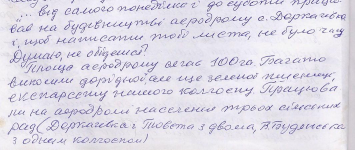 „... від самого понеділка і до суботи працю-
вав на будівництві аеродрому с. Доржаківка
і, щоб написати тобі листа, не було часу
Думаю, не обідешся?
Площа аеродрому сягає 100 га. Багато
викошли дорідної, але ще зеленої пшениці,
експарсету нашого колгоспу. Працюва
ли на аеродромі населення трьох сільських
рад (Доржаківка і Товста з двома, В. Буденівка
з одним колгоспом)